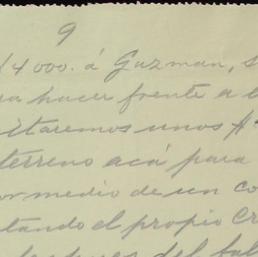 9
14000. á Guzman, s
ra hacer frente a l
itaremos unos #
terreno acá para
or medio de un co
tando el propio Cr
despues del fal